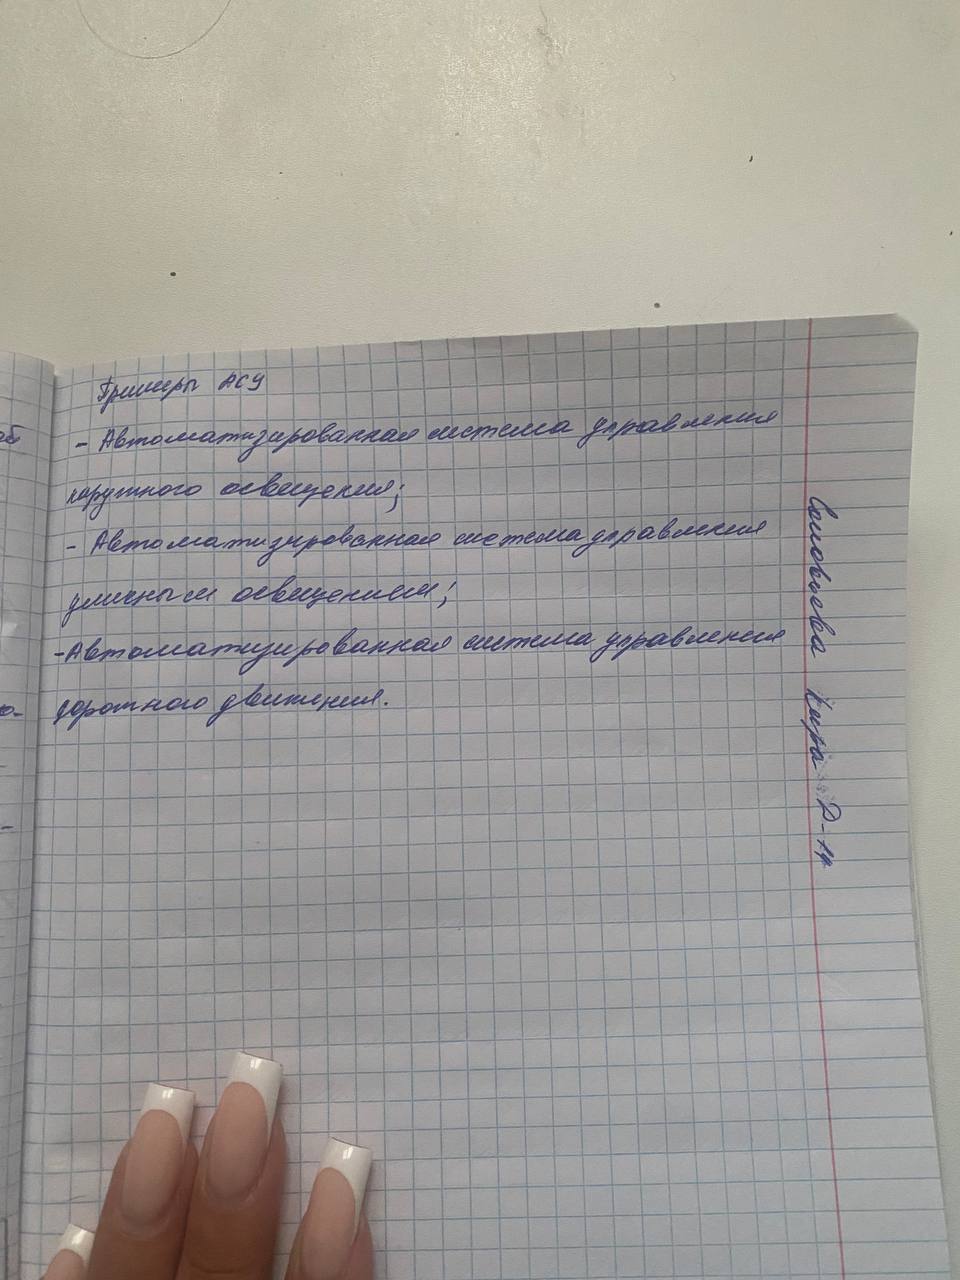 Примеры АСУ
- Автоматизированная система управления
наружного освещения;
- Автоматизированная система управления
уличным освещением;
- Автоматизированная система управления
дорожного движения.
Соловьева Кира Д-1р